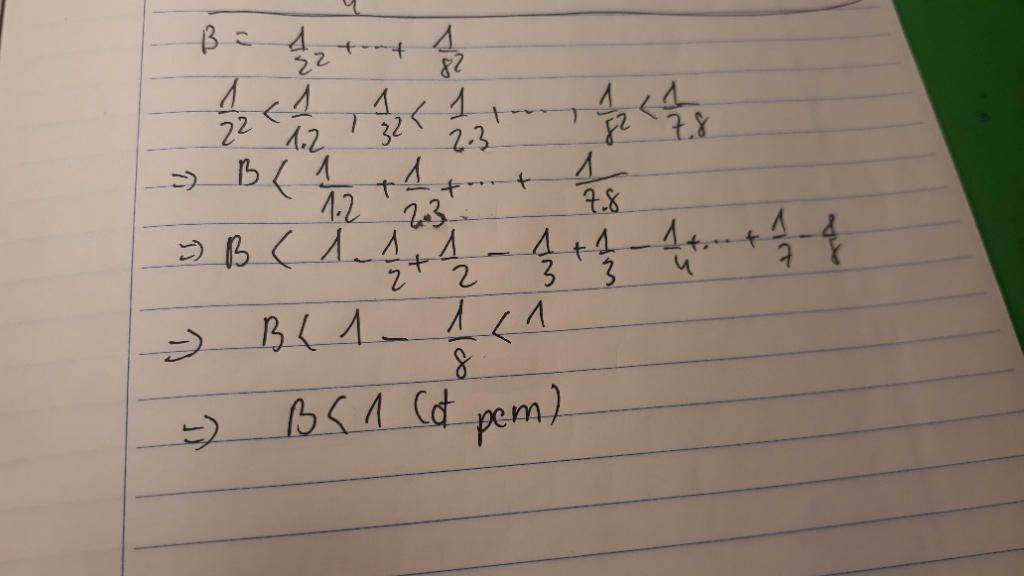 B = 1/2² + ... + 1/8²
1/2² < 1/1.2 , 1/3² < 1/2.3 , ... , 1/8² < 1/7.8
=> B < 1/1.2 + 1/2.3 + ... + 1/7.8
=> B < 1 - 1/2 + 1/2 - 1/3 + 1/3 - 1/4 + ... + 1/7 - 1/8
=> B < 1 - 1/8 < 1
=> B < 1 (đpcm)